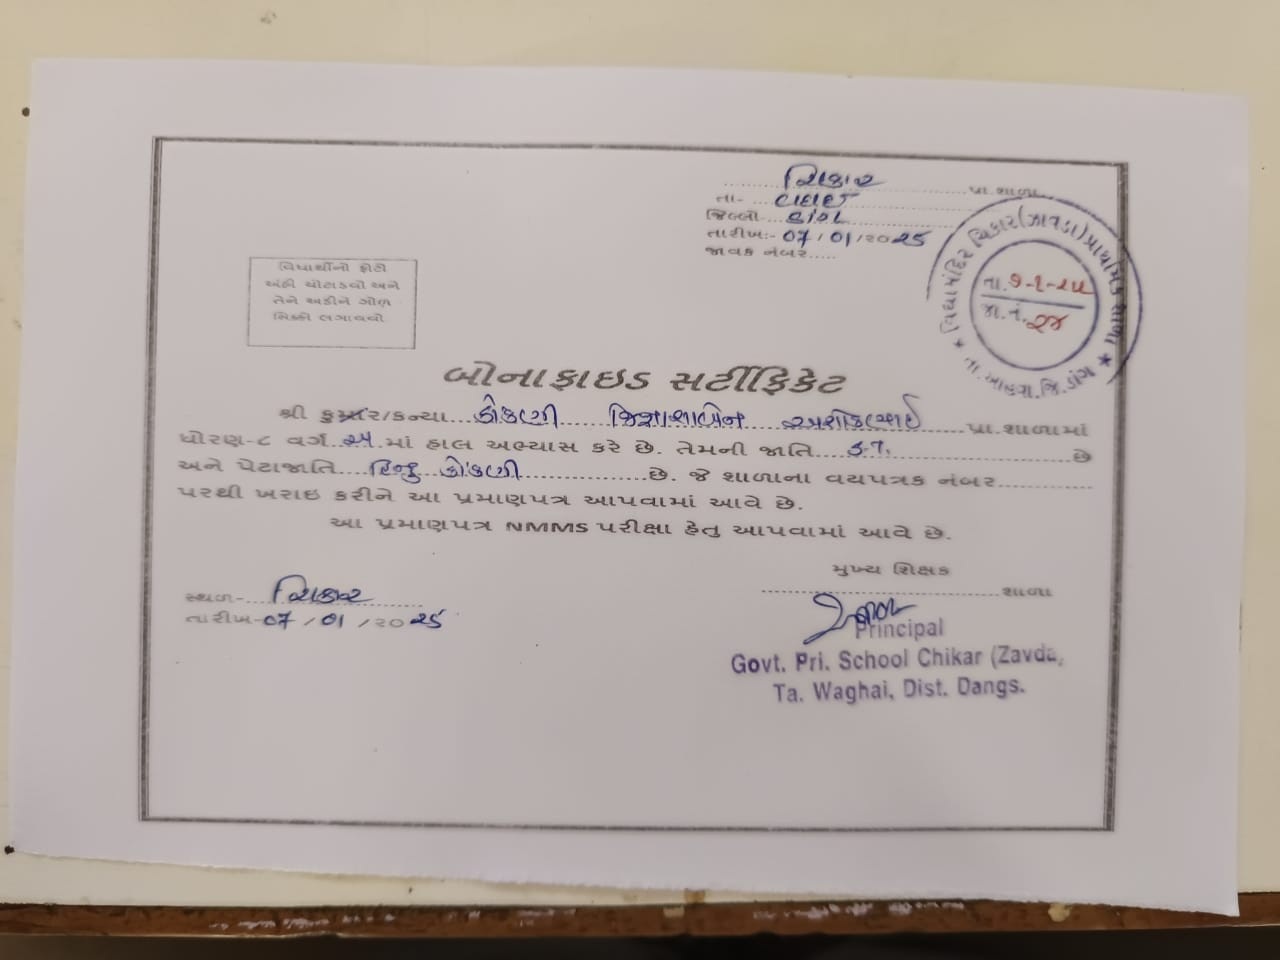 ચિકાર પ્રા.શાળા
તા- વઘઈ
જિલ્લો- ડાંગ
તારીખ:- 07/01/2025
જાવક નંબર.....
વિદ્યામંદિર ચિકાર(ઝાવડા)પ્રાથમિક શાળા
તા.૭-૧-૨૫
જા.નં.૨૪
વિદ્યાર્થીનો ફોટો
અહીં ચોંટાડવો અને
તેને અડીને ગોળ
સિક્કો લગાવવો.
બોનાફાઇડ સર્ટીફિકેટ
શ્રી કુમાર/કન્યા કોકણી જિજ્ઞાશાબેન અશોકભાઈ પ્રા.શાળામાં
ધોરણ-૮ વર્ગ અ માં હાલ અભ્યાસ કરે છે. તેમની જાતિ છે
અને પેટાજાતિ હિન્દુ કોંકણી છે. જે શાળાના વયપત્રક નંબર
પરથી ખરાઇ કરીને આ પ્રમાણપત્ર આપવામાં આવે છે.
આ પ્રમાણપત્ર NMMS પરીક્ષા હેતુ આપવામાં આવે છે.
મુખ્ય શિક્ષક
શાળા
સ્થળ- ચિકાર
તારીખ-07/01/2025
Principal
Govt. Pri. School Chikar (Zavda,
Ta. Waghai, Dist. Dangs.